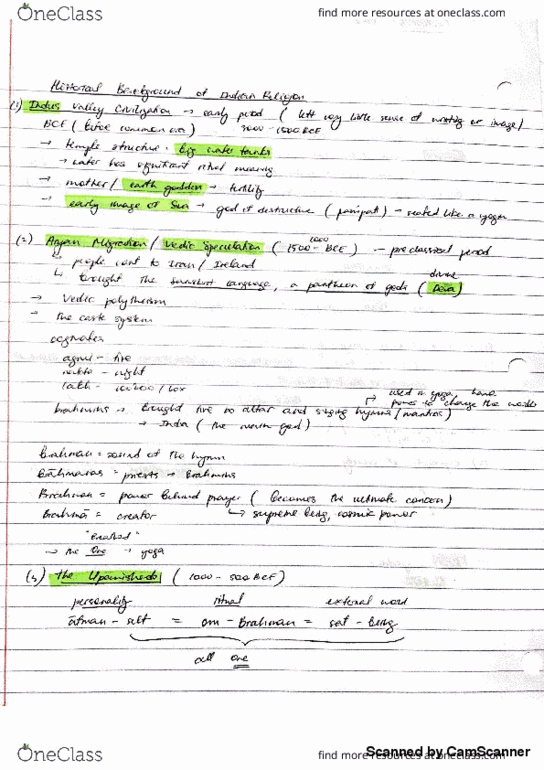 OneClass
find more resources at oneclass.com
Historical Background of Indian Religion
(1) Indus Valley Civilization → early period ( left very little sense of writing or image/
BCE ( before common era) 3000 - 1500 BCE
→ temple structure : big water tanks
→ water has significant ritual meaning
→ mother/ earth goddess → fertility
→ early image of Siva → god of destructive ( ) → seated like a yogin
(2) Aryan Migration/ Vedic Speculation ( 1500 - 1000 BCE) - preclassical period
people went to Iran/ Ireland
↳ brought the sanskrit language, a pantheon of gods ( Deva) divine
→ Vedic polytheism
→ the caste system
cognates
agni - fire
- night
- 100 000 / lox
brahmins → brought fire to altar and singing hymns/ mantras)
used in yoga, have power to change the world
→ Indra ( the warrior god)
Brahman = sound of the hymn
Brāhmaṇas = priests → Brahmins
Brahman = power behind prayer ( becomes the ultimate concern)
Brahmā = creator ↳ supreme being, cosmic power
→ the One → yoga
the Upanishads ( 1000 - 500 BCE)
personality ritual external world
ātman - self = om - Brahman = sat - being
all one
OneClass
find more resources at oneclass.com
Scanned by CamScanner